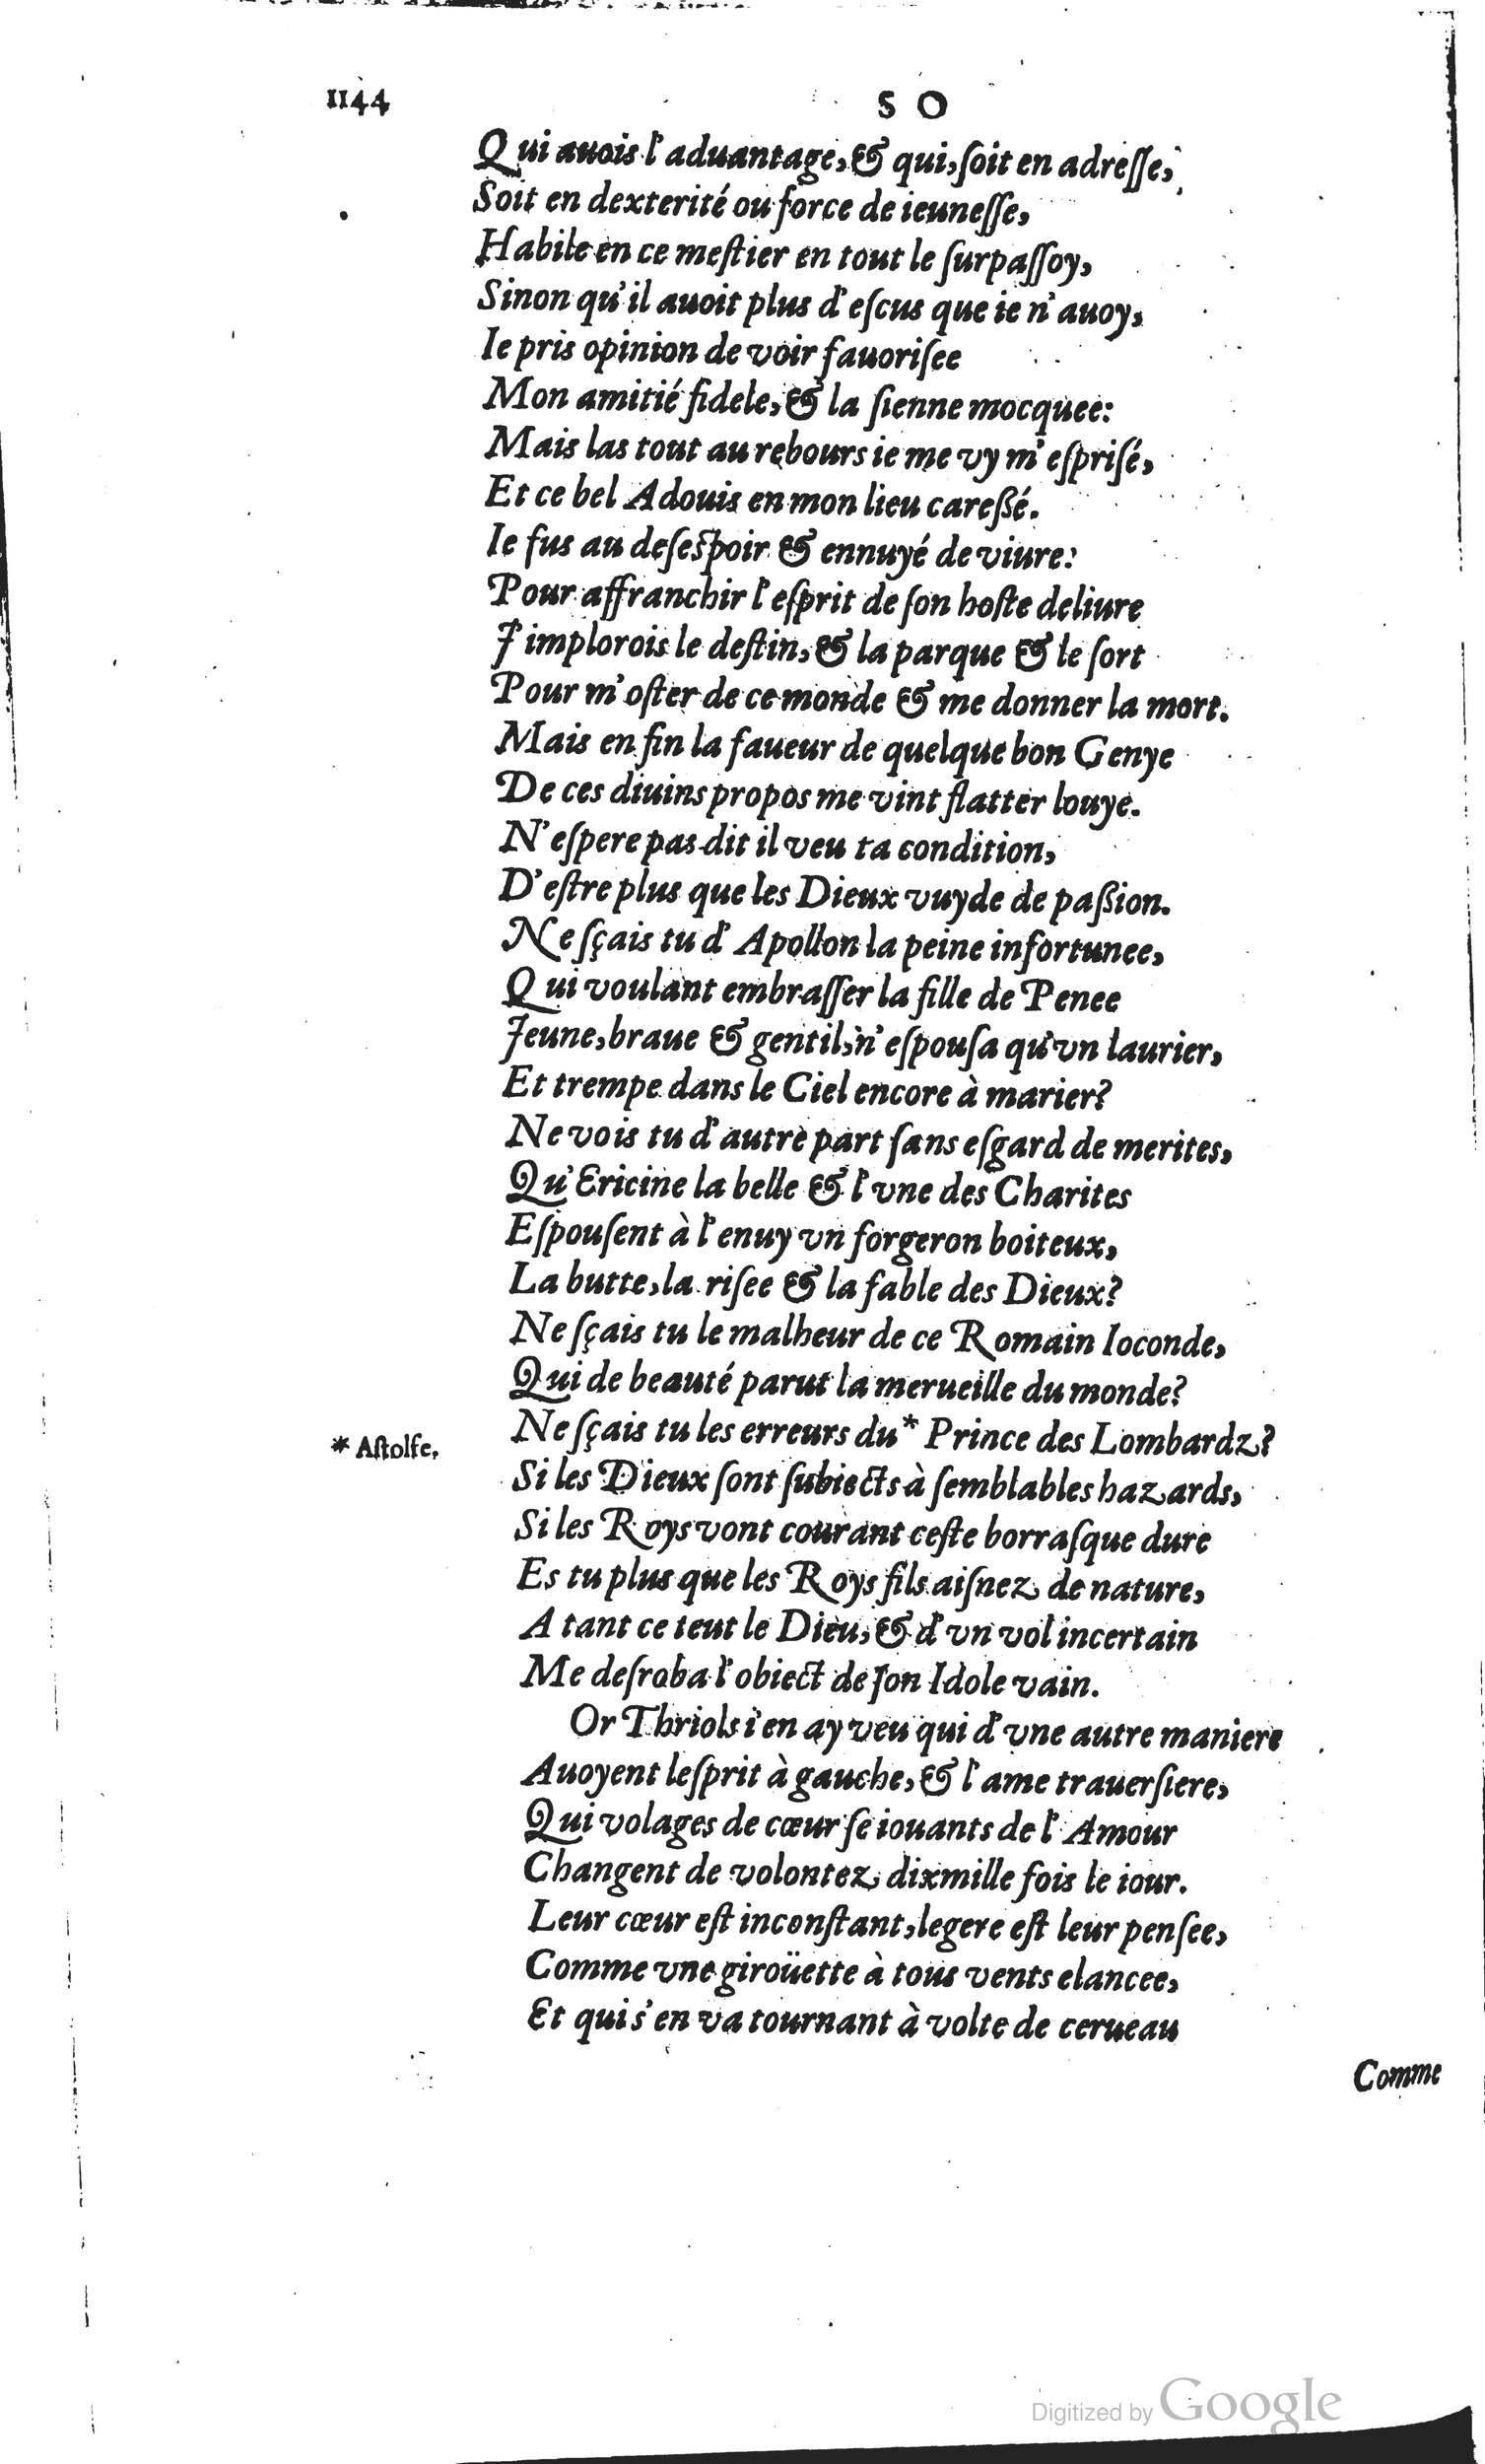 1144
S O
Qui auois l'aduantage, & qui, ſoit en adreſſe,
Soit en dexterité ou force de ieuneſſe,
Habile en ce meſtier en tout le ſurpaſſoy,
Sinon qu'il auoit plus d'eſcus que ie n'auoy,
Ie pris opinion de voir fauoriſee
Mon amitié fidele, & la ſienne mocquee:
Mais las tout au rebours ie me vy m'eſpriſé,
Et ce bel Adouis en mon lieu careßé.
Ie fus au deſeſpoir & ennuyé de viure:
Pour affranchir l'eſprit de ſon hoſte deliure
J'implorois le deſtin, & la parque & le ſort
Pour m'oſter de ce monde & me donner la mort.
Mais en fin la faueur de quelque bon Genye
De ces diuins propos me vint flatter louye.
N'eſpere pas dit il veu ta condition,
D'eſtre plus que les Dieux vuyde de paßion.
Ne ſçais tu d'Apollon la peine infortunee,
Qui voulant embraſſer la fille de Penee
Jeune, braue & gentil, n'eſpouſa qu'vn laurier,
Et trempe dans le Ciel encore à marier?
Ne vois tu d'autre part ſans eſgard de merites,
Qu'Ericine la belle & l'vne des Charites
Eſpouſent à l'enuy vn forgeron boiteux,
La butte, la riſee & la fable des Dieux?
Ne ſçais tu le malheur de ce Romain Ioconde,
Qui de beauté parut la merueille du monde?
Ne ſçais tu les erreurs du* Prince des Lombardz?
* Aſtolfe.
Si les Dieux ſont ſubiects à ſemblables hazards,
Si les Roys vont courant ceſte borraſque dure
Es tu plus que les Roys fils aiſnez de nature,
A tant ce teut le Dieu, & d'vn vol incertain
Me deſroba l'obiect de ſon Idole vain.
Or Thriols i'en ay veu qui d'vne autre maniere
Auoyent leſprit à gauche, & l'ame trauerſiere,
Qui volages de cœur ſe iouants de l'Amour
Changent de volontez dixmille fois le iour.
Leur cœur eſt inconſtant, legere eſt leur penſee,
Comme vne giroüette à tous vents elancee,
Et qui s'en va tournant à volte de cerueau
Comme
Digitized by Google